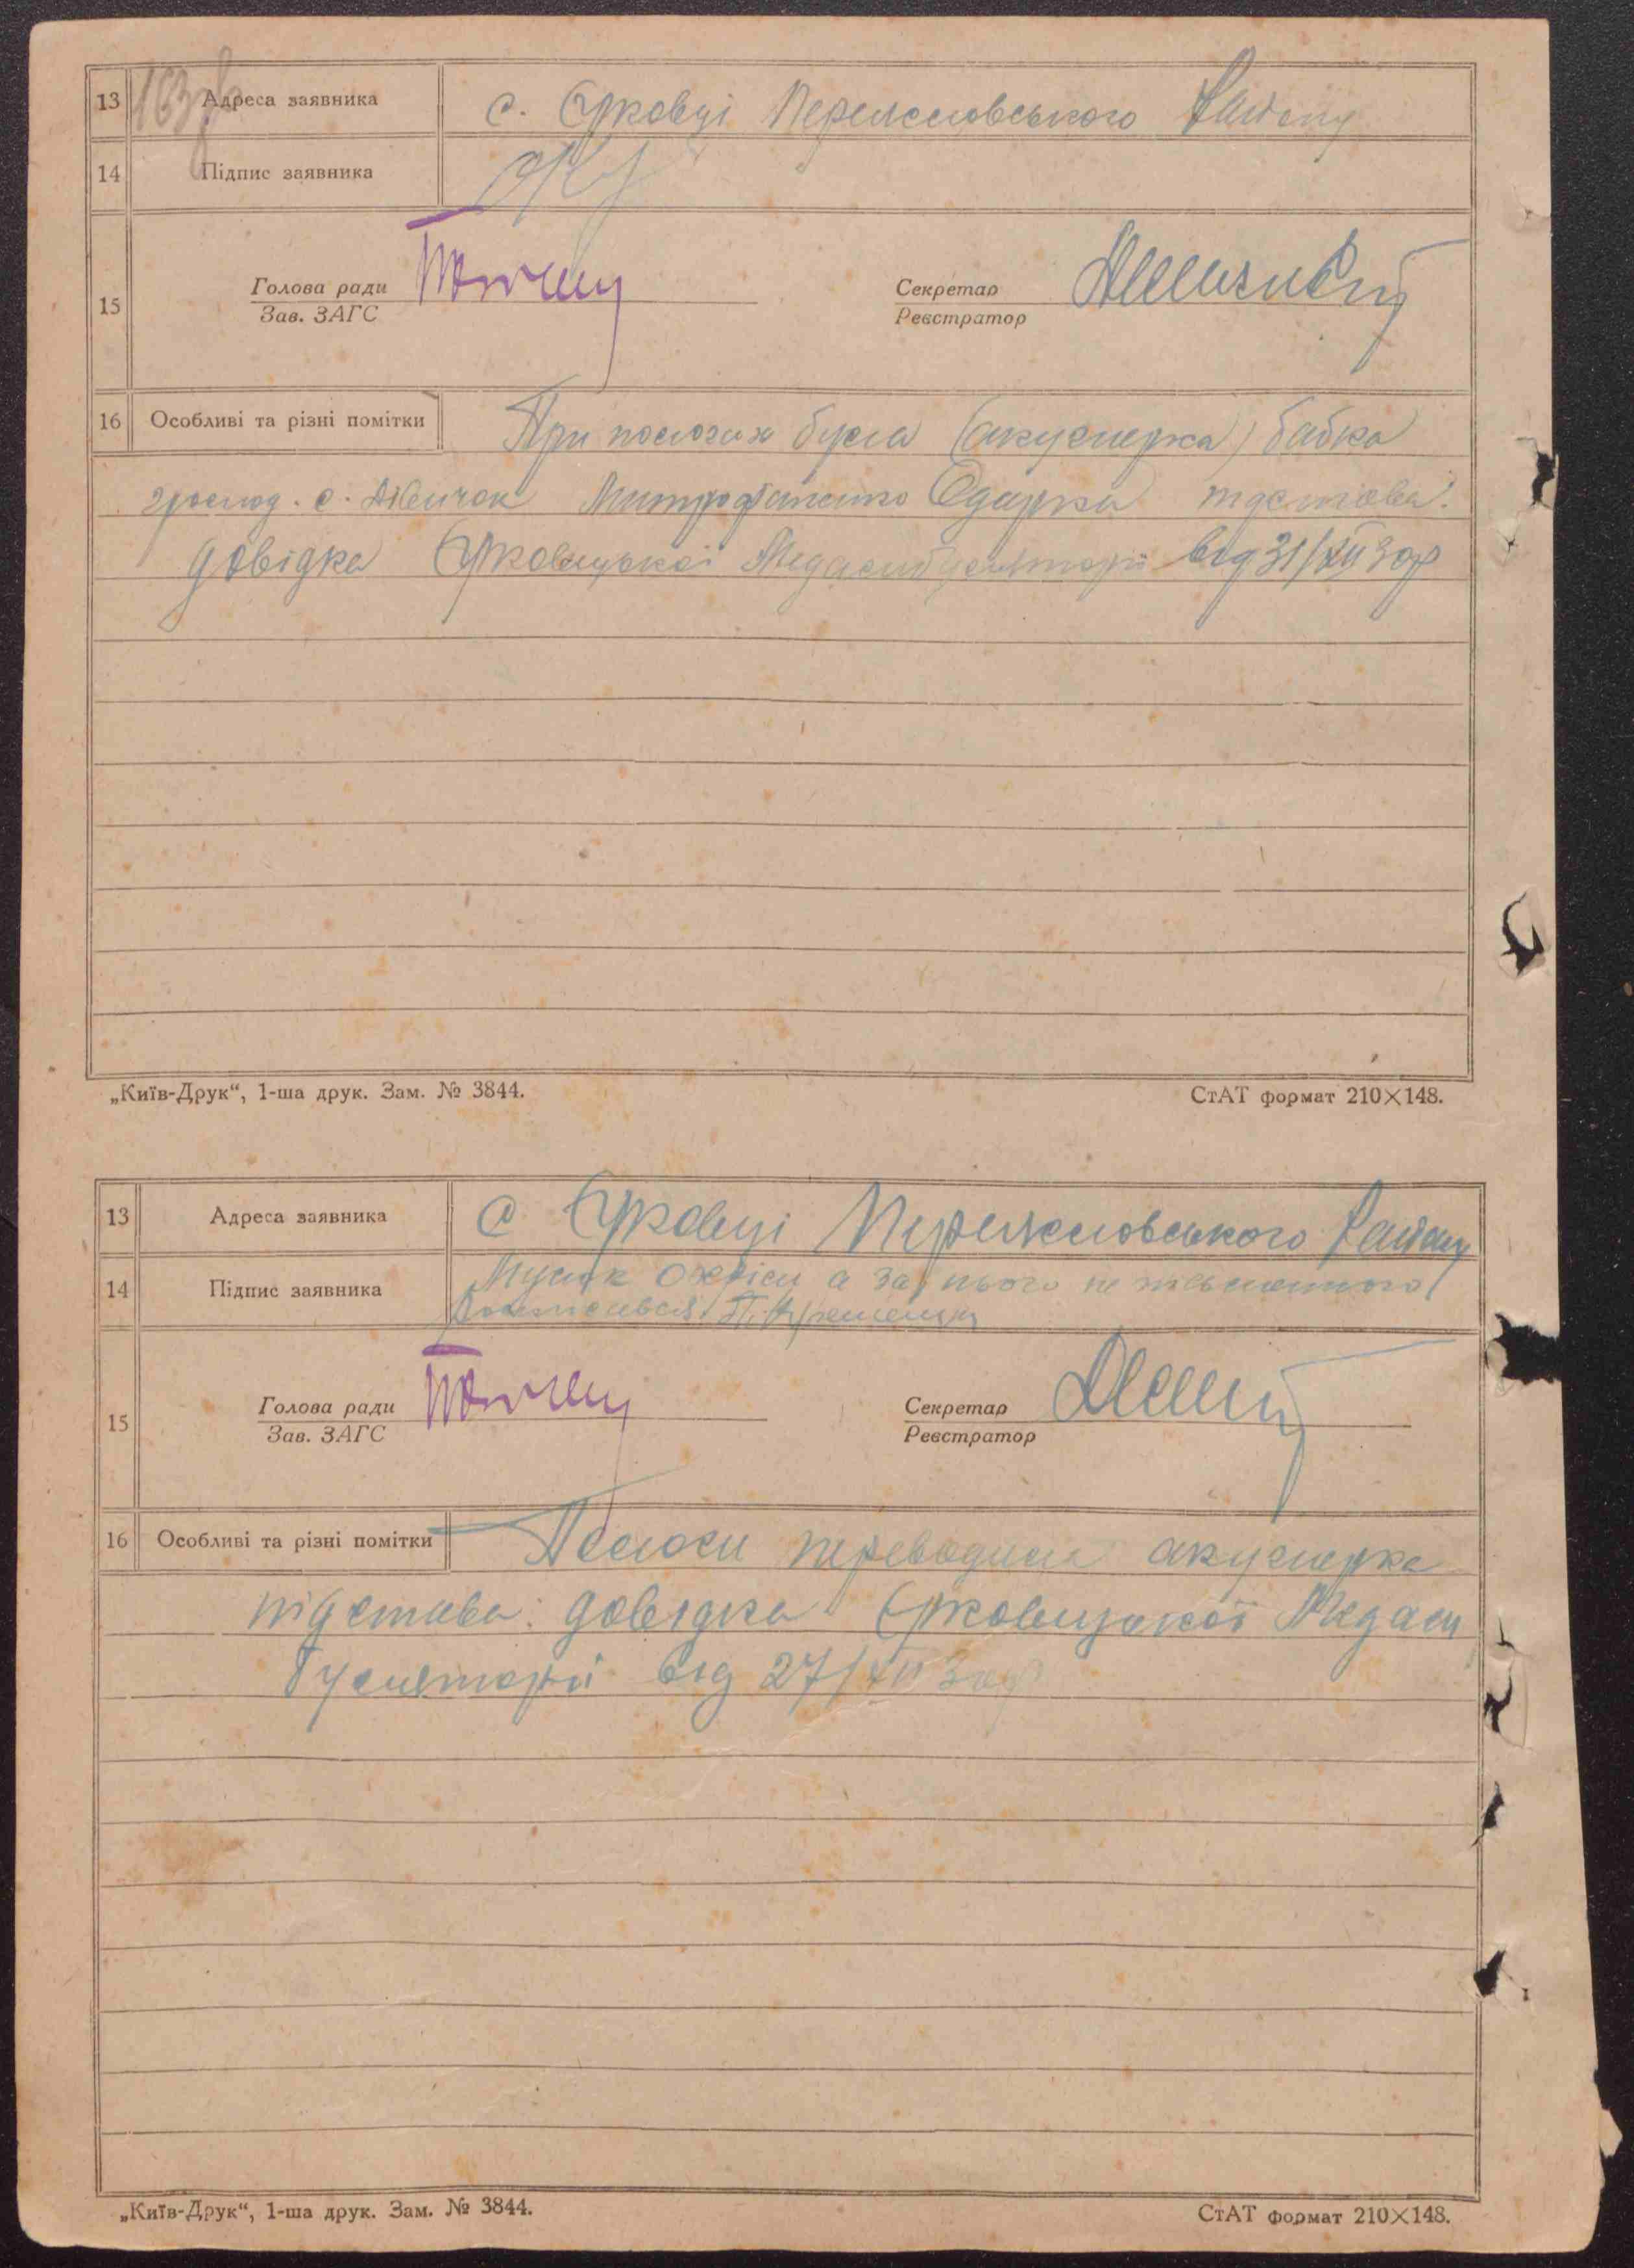 163зв
13 Адреса заявника с. Єрковці Переяславського Району
14 Підпис заявника
15 Голова ради Секретар
Зав. ЗАГС Реєстратор
16 Особливі та різні помітки При пологах була (акушерка) бабка
с. Дівичок Митрофаненко Одарка підстава:
довідка Єрковецької Медамбуляторії від 31/XII 30р
„Київ-Друк“, 1-ша друк. Зам. № 3844. СтАТ формат 210×148.
13 Адреса заявника с Єрковці Переяславського Району
14 Підпис заявника а за нього не письменного
Розписався
15 Голова ради Секретар
Зав. ЗАГС Реєстратор
16 Особливі та різні помітки Пологи переводила акушерка
підстава: довідка Єрковецької Медам
буляторії від 27/XII 30р
„Київ-Друк“, 1-ша друк. Зам. № 3844. СтАТ формат 210×148.